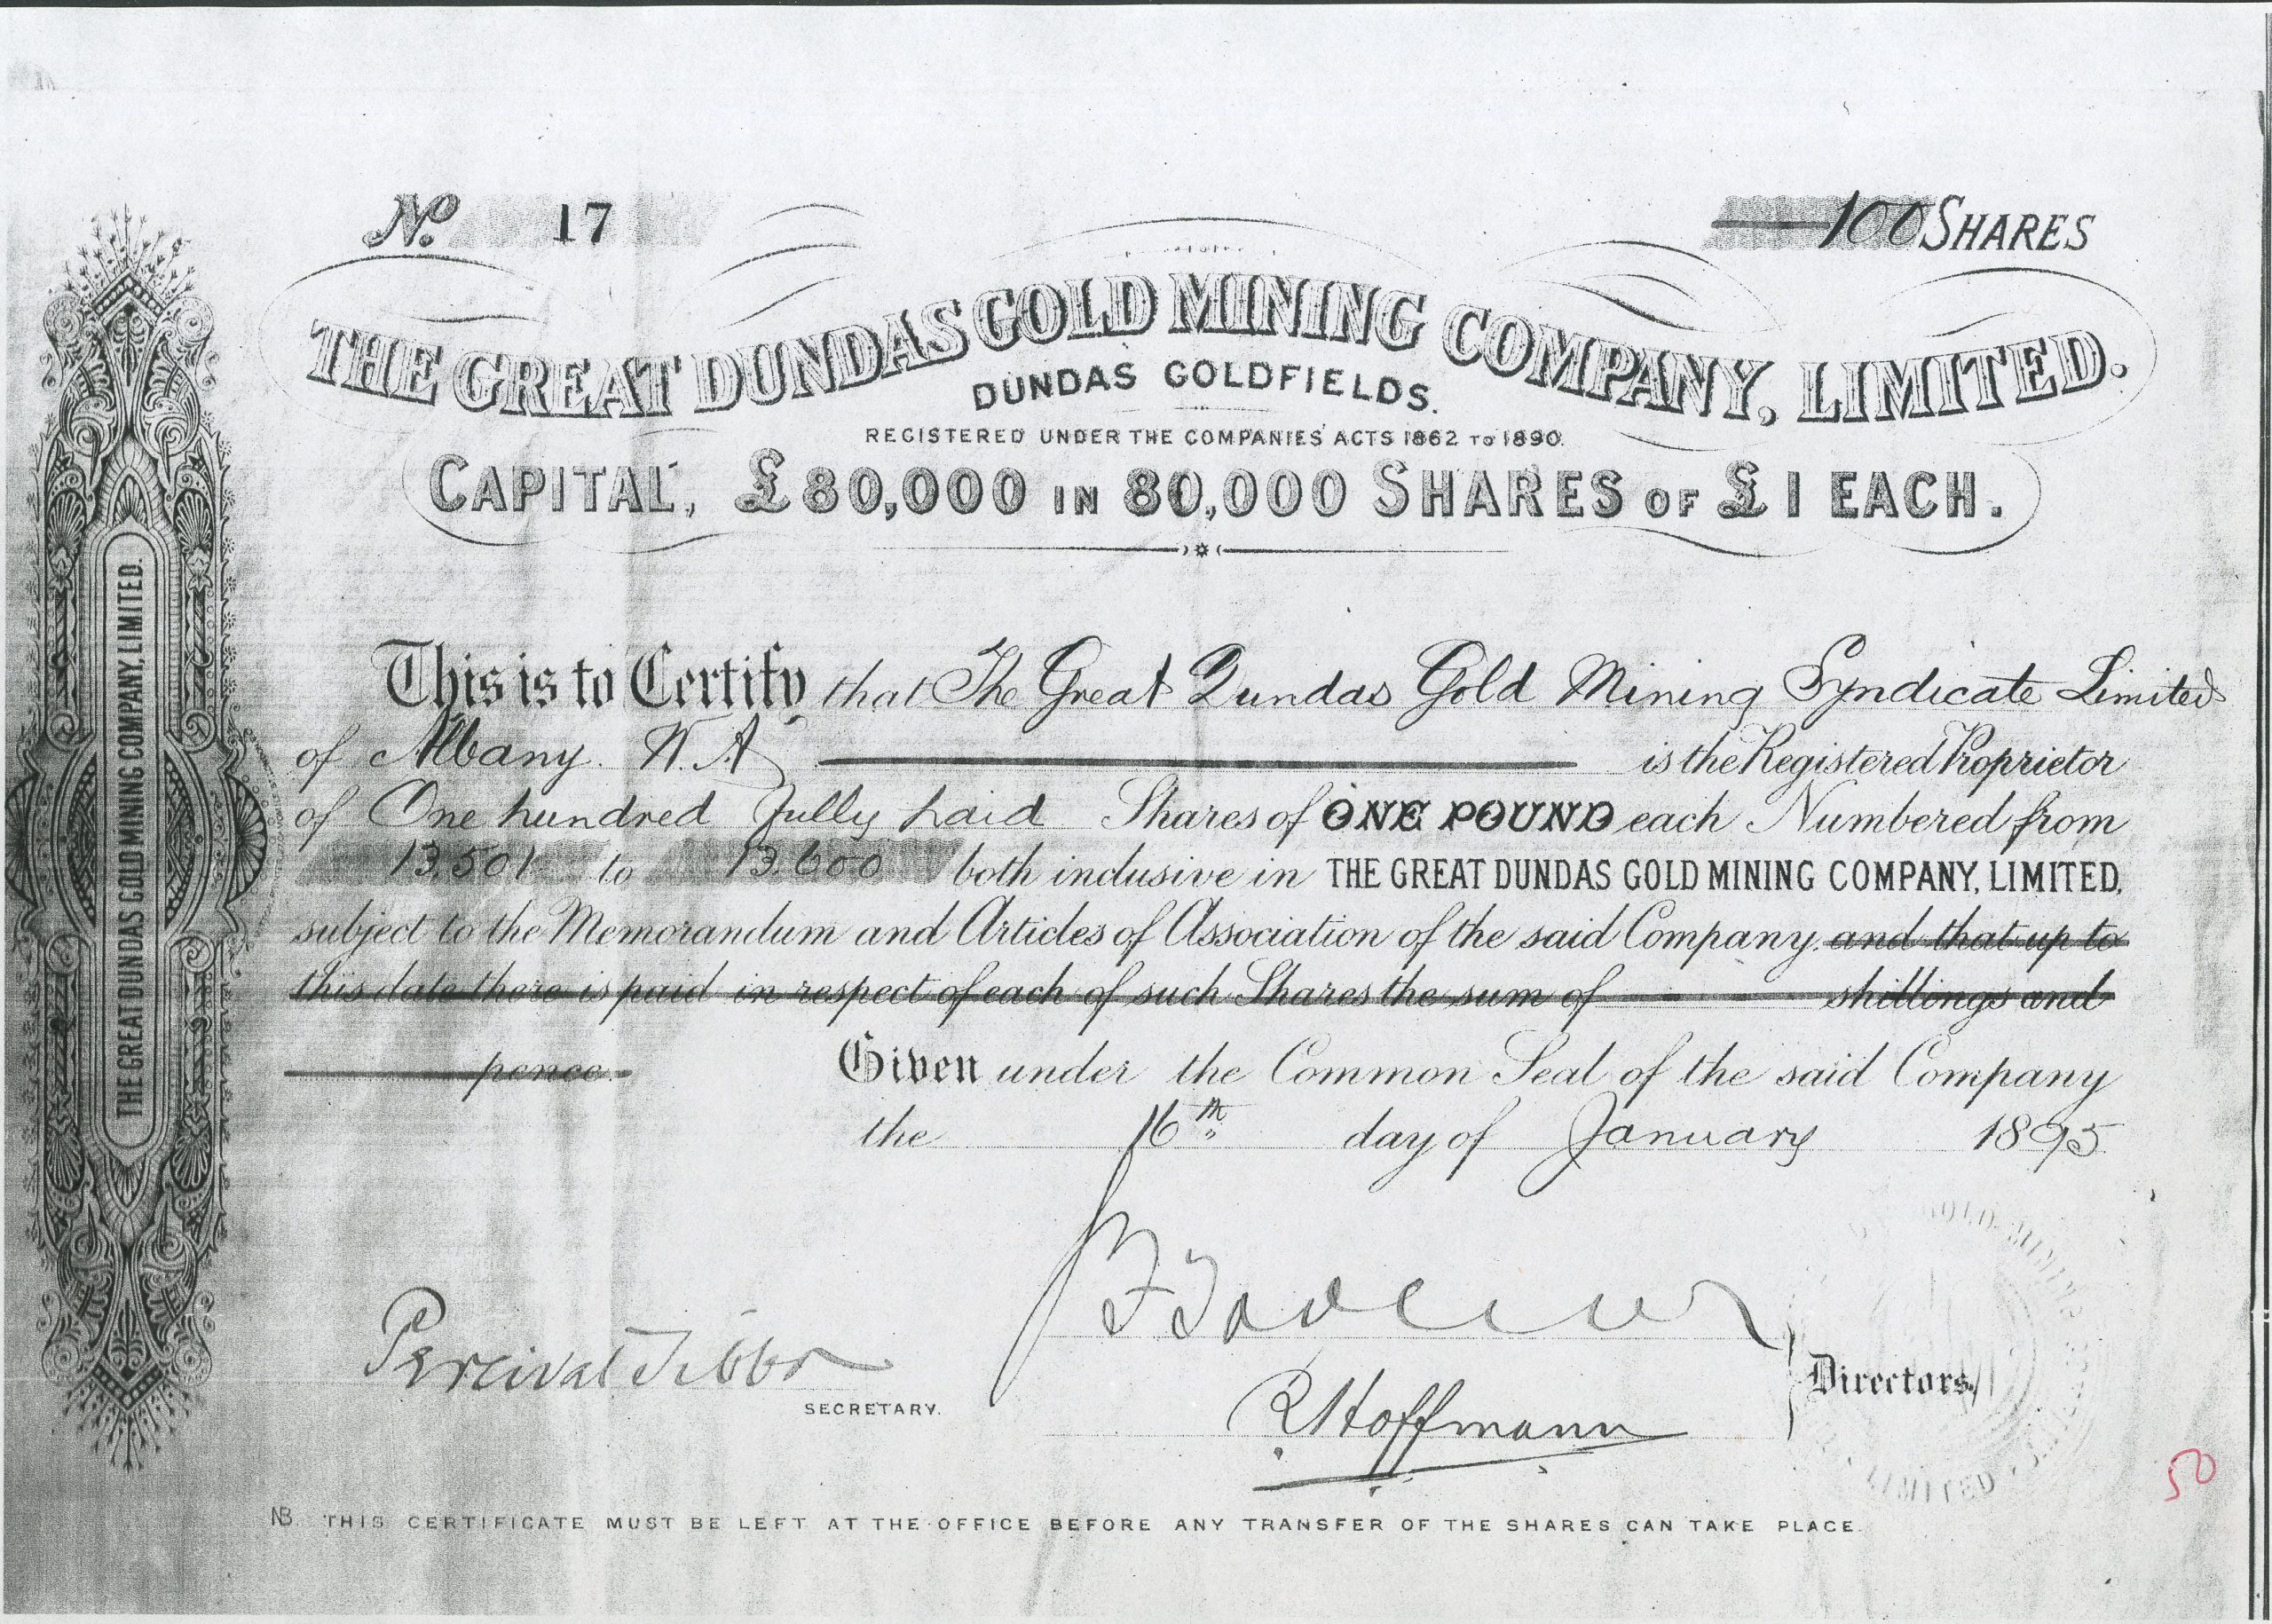 No. 17
100 SHARES
THE GREAT DUNDAS GOLD MINING COMPANY, LIMITED.
DUNDAS GOLDFIELDS.
REGISTERED UNDER THE COMPANIES' ACTS 1862 TO 1890.
CAPITAL, £80,000 IN 80,000 SHARES OF £1 EACH.
THE GREAT DUNDAS GOLD MINING COMPANY, LIMITED.
This is to Certify that The Great Dundas Gold Mining Syndicate Limited
of Albany. W.A is the Registered Proprietor
of One hundred fully paid Shares of ONE POUND each Numbered from
13.501 to 13.600 both inclusive in THE GREAT DUNDAS GOLD MINING COMPANY, LIMITED,
subject to the Memorandum and Articles of Association of the said Company. and that up to
this date there is paid in respect of each of such Shares the sum of shillings and
pence. Given under the Common Seal of the said Company
the 16th day of January 1895
Percival
SECRETARY.
R Hoffmann
Directors.
GOLD MINING
LIMITED
50
NB. THIS CERTIFICATE MUST BE LEFT AT THE OFFICE BEFORE ANY TRANSFER OF THE SHARES CAN TAKE PLACE.